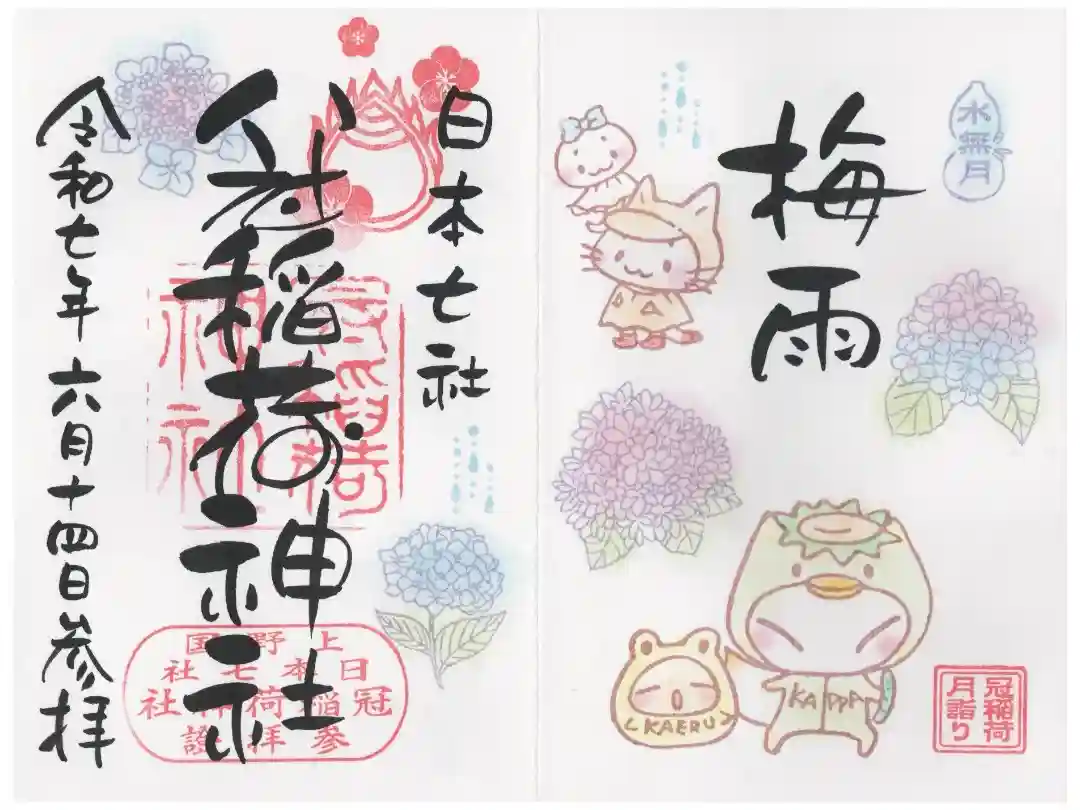 水無月
梅雨
KAPPA
KAERU
冠稲荷
月詣り
日本七社
冠稲荷神社
令和七年六月十四日参拝
上野国
日本七社
冠稲荷神社
参拝證